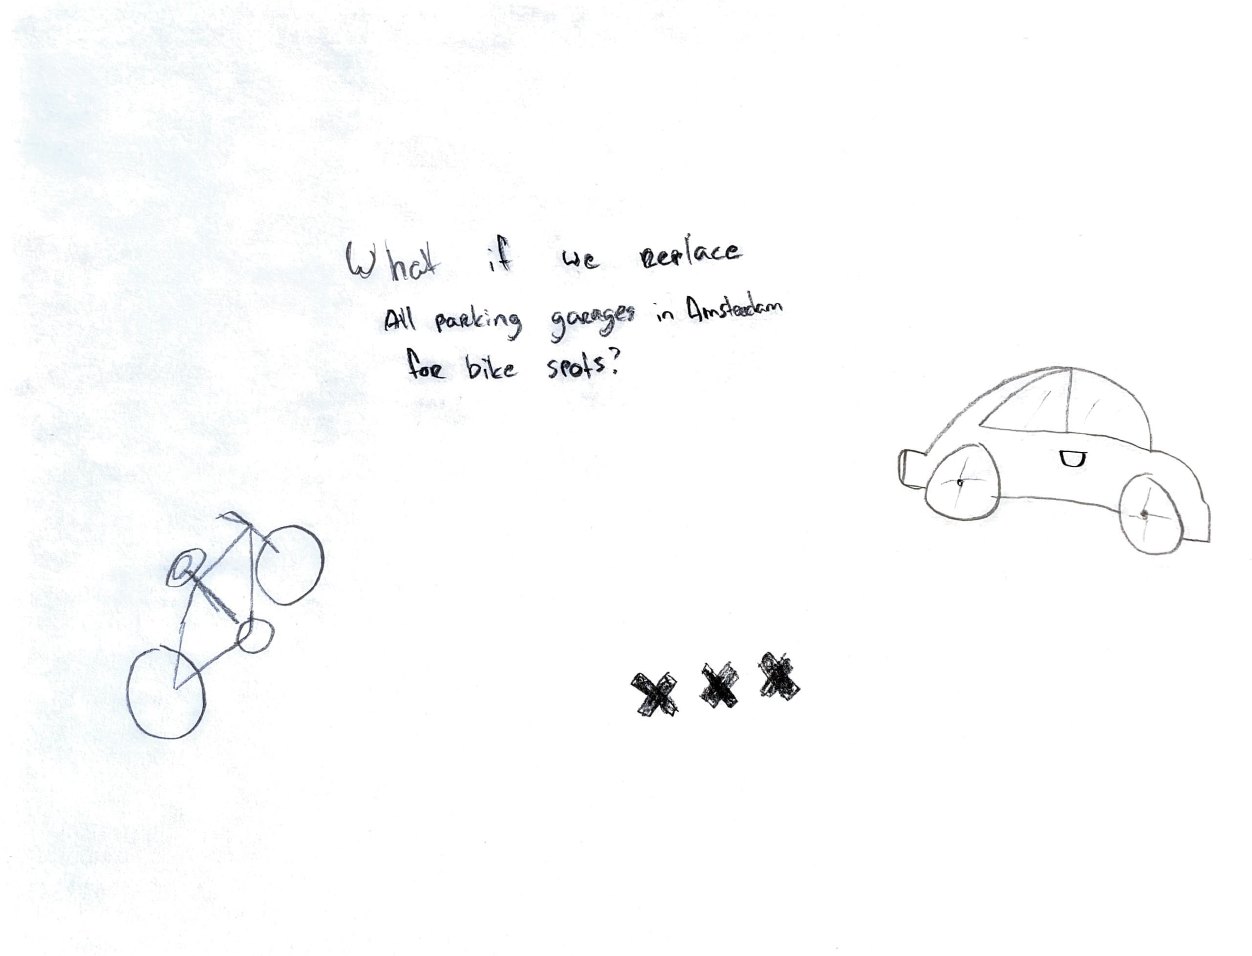 What if we replace
All parking garages in Amsterdam
for bike spots?